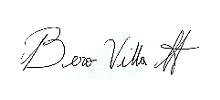 Bero Villa